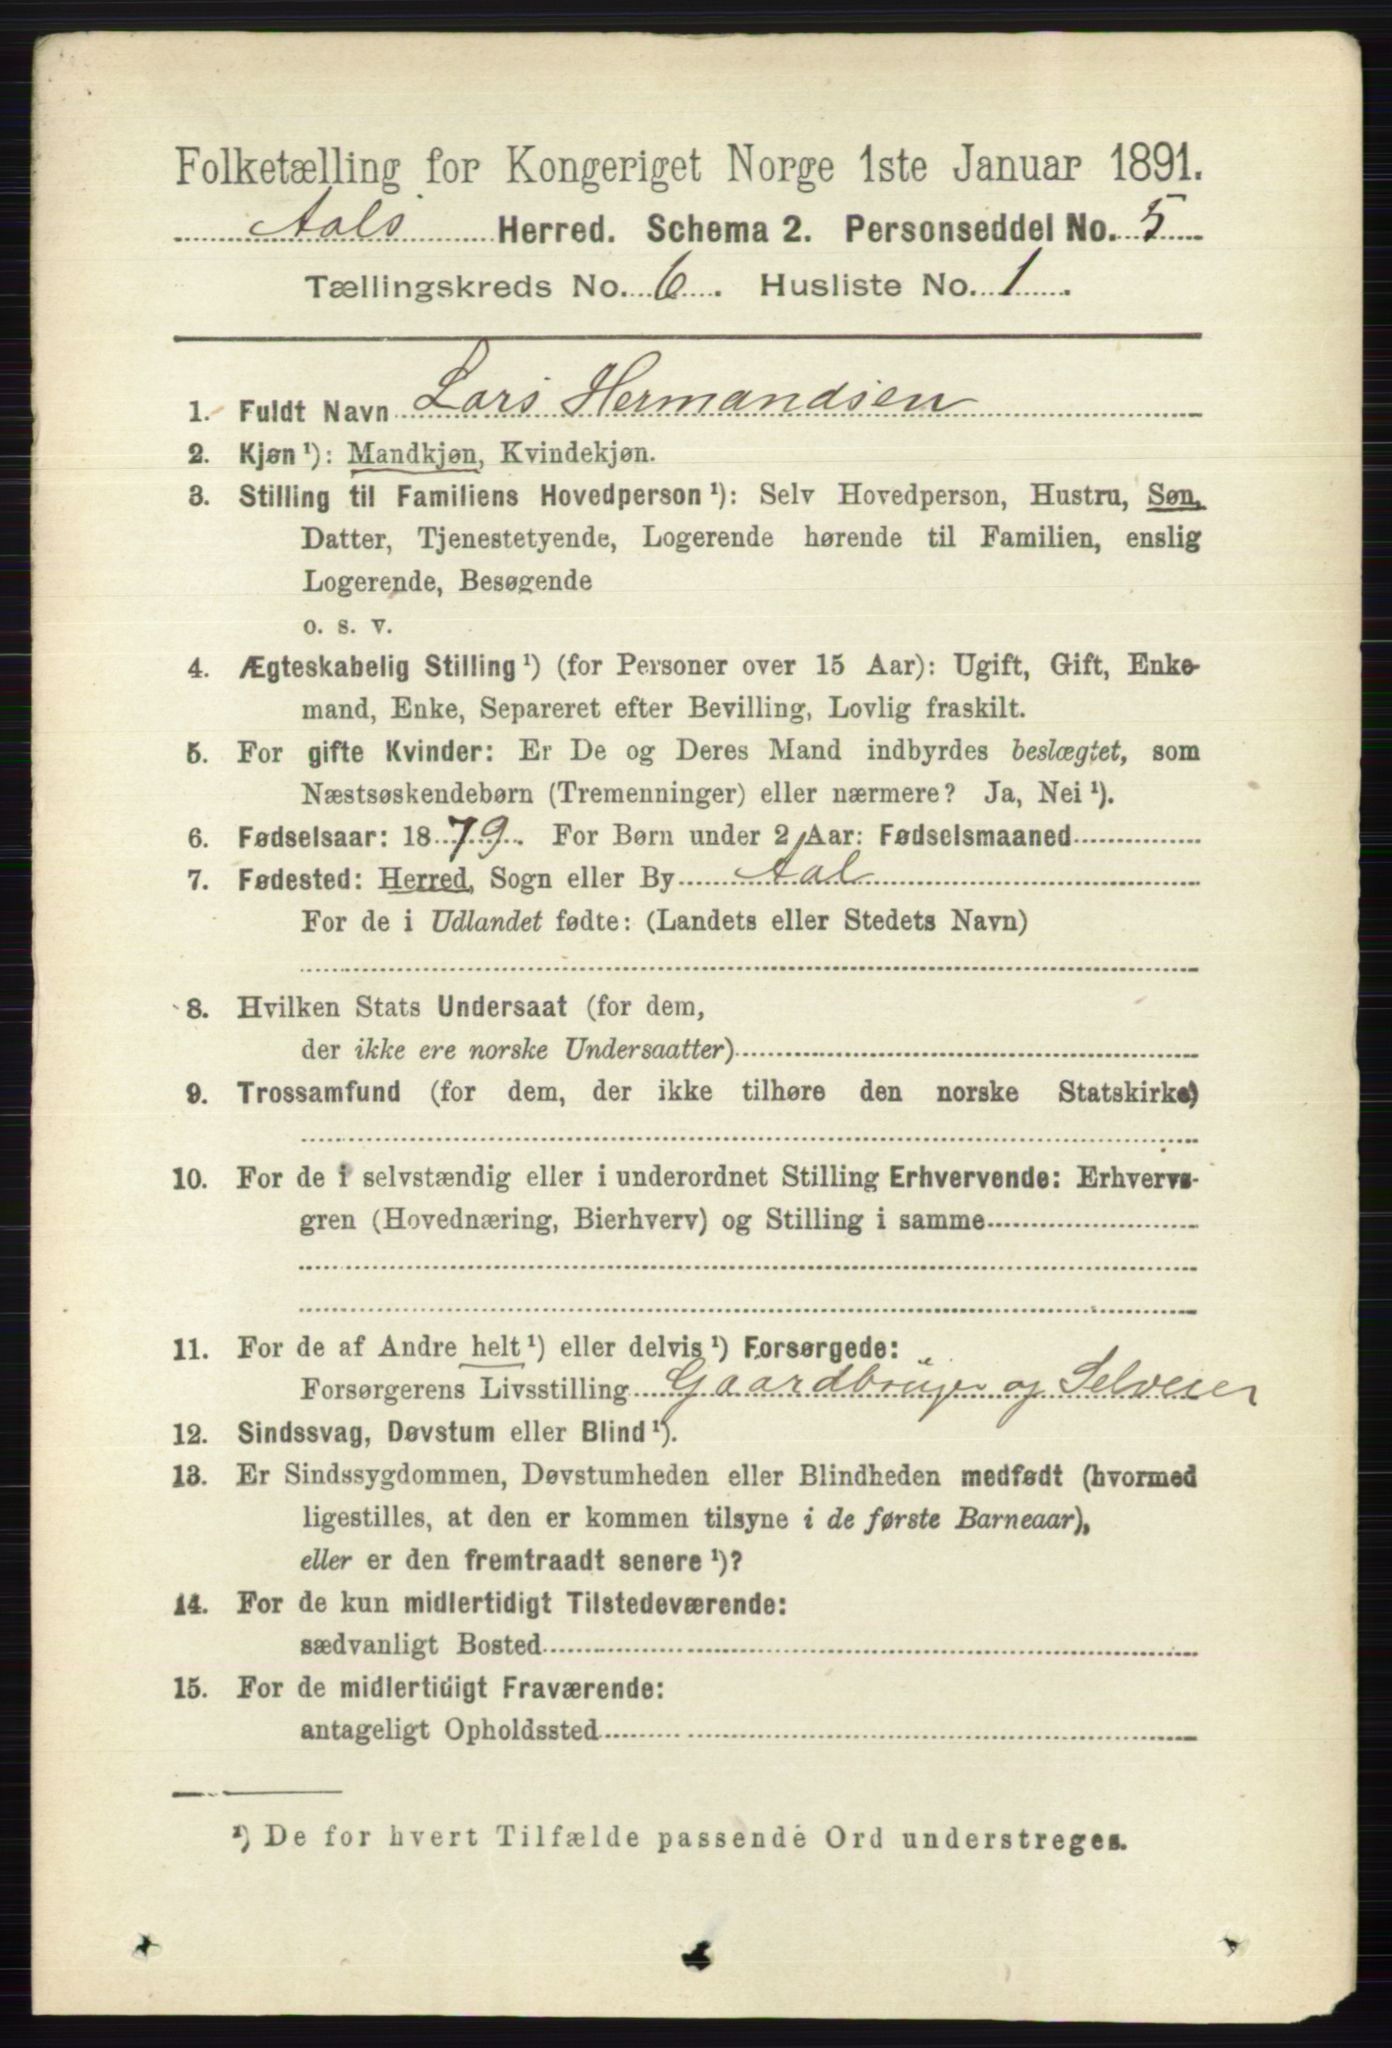 Folketælling for Kongeriget Norge 1ste Januar 1891.
Aals Herred. Schema 2. Personseddel No. 5
Tællingskreds No. 6. Husliste No. 1.
1. Fuldt Navn Lars Hermandsen
2. Kjøn ¹): Mandkjøn, Kvindekjøn.
3. Stilling til Familiens Hovedperson ¹): Selv Hovedperson, Hustru, Søn,
Datter, Tjenestetyende, Logerende hørende til Familien, enslig
Logerende, Besøgende
o. s. v.
4. Ægteskabelig Stilling ¹) (for Personer over 15 Aar): Ugift, Gift, Enke-
mand, Enke, Separeret efter Bevilling, Lovlig fraskilt.
5. For gifte Kvinder: Er De og Deres Mand indbyrdes beslægtet, som
Næstsøskendebørn (Tremenninger) eller nærmere? Ja, Nei ¹).
6. Fødselsaar: 1879. For Børn under 2 Aar: Fødselsmaaned
7. Fødested: Herred, Sogn eller By Aal
For de i Udlandet fødte: (Landets eller Stedets Navn)
8. Hvilken Stats Undersaat (for dem,
der ikke ere norske Undersaatter)
9. Trossamfund (for dem, der ikke tilhøre den norske Statskirke)
10. For de i selvstændig eller i underordnet Stilling Erhvervende: Erhvervs-
gren (Hovednæring, Bierhverv) og Stilling i samme
11. For de af Andre helt ¹) eller delvis ¹) Forsørgede:
Forsørgerens Livsstilling Gaardbruger og Selveier
12. Sindssvag, Døvstum eller Blind ¹).
13. Er Sindssygdommen, Døvstumheden eller Blindheden medfødt (hvormed
ligestilles, at den er kommen tilsyne i de første Barneaar),
eller er den fremtraadt senere ¹)?
14. For de kun midlertidigt Tilstedeværende:
sædvanligt Bosted
15. For de midlertidigt Fraværende:
antageligt Opholdssted
¹) De for hvert Tilfælde passende Ord understreges.